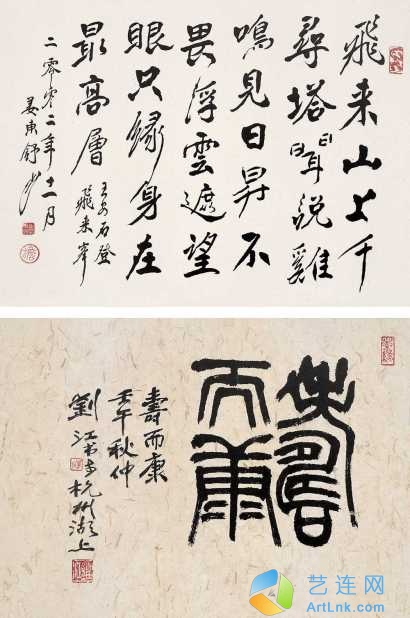 飛来山上千
尋塔聞說雞
鳴見日昇不
畏浮雲遮望
眼只緣身在
最高層
王安石登
飛来峯
二零零二年十一月
姜東舒书
壽
而康
壽而康
壬午秋仲
劉江书于杭州湖上
艺连网
ArtLnk.com